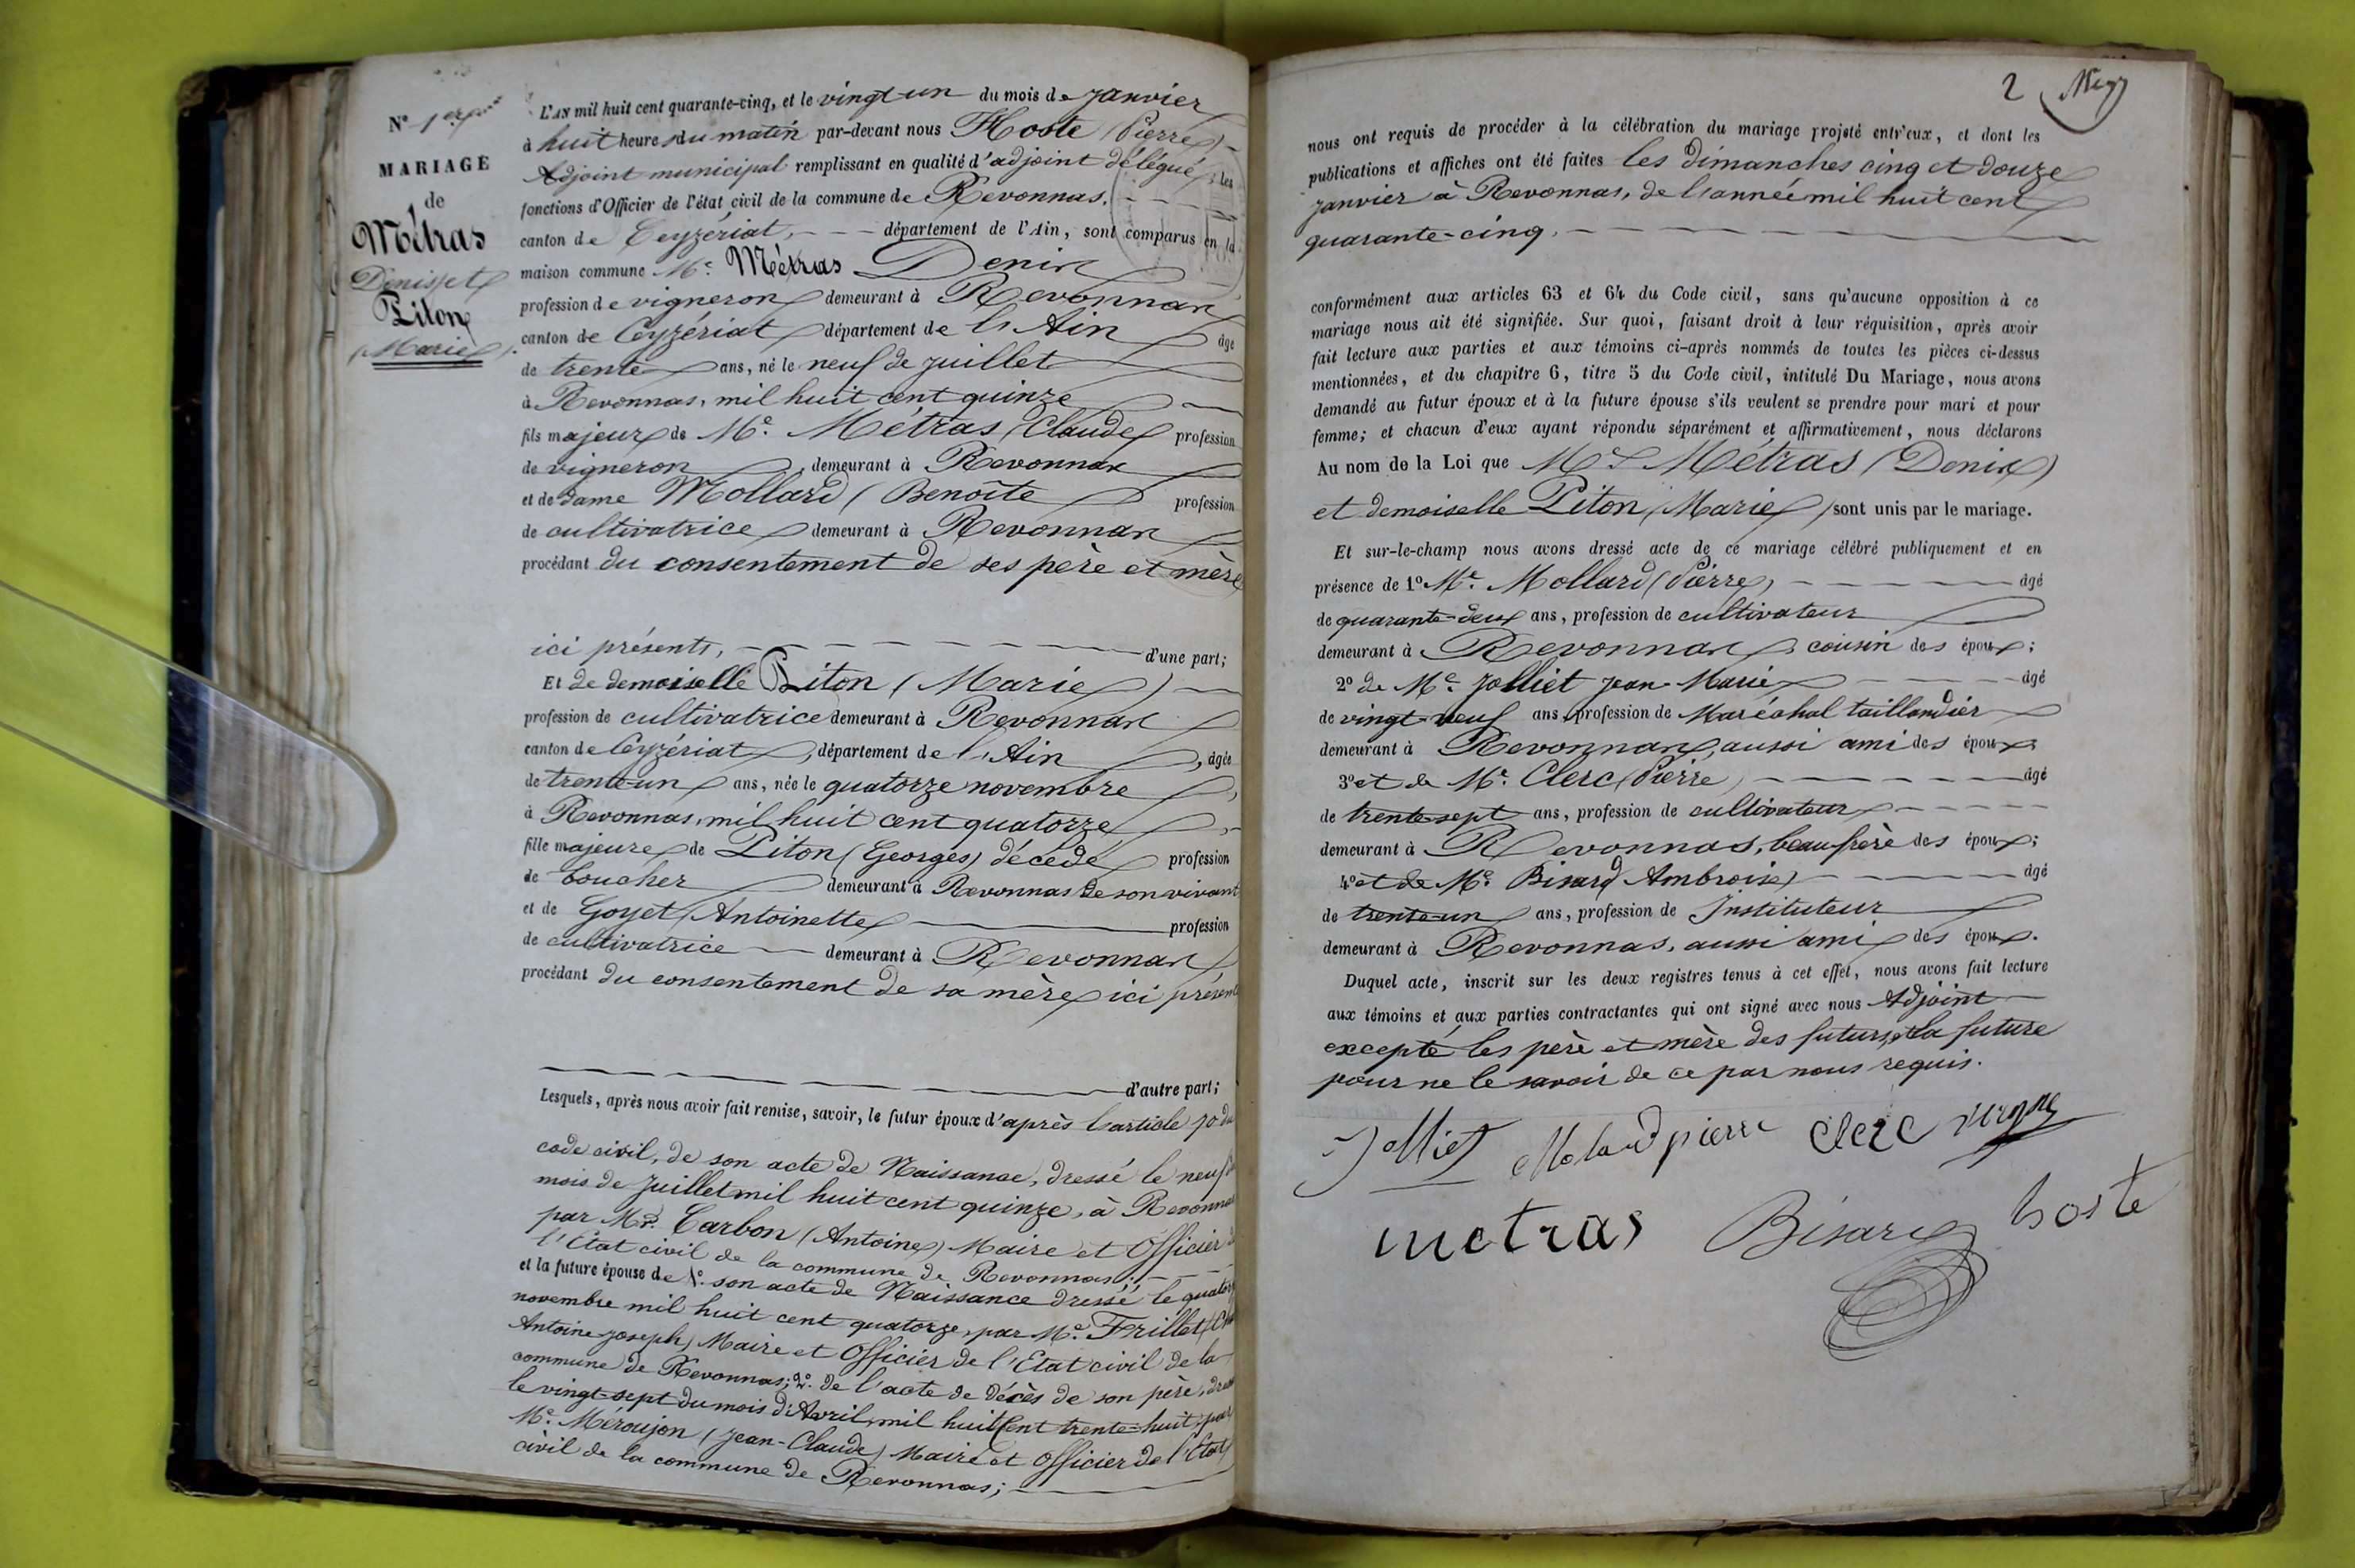 N° 1er
MARIAGE
de
Métras
Denis et
Piton
(Marie)
L'AN mil huit cent quarante-cinq, et le vingt un du mois de janvier
à huit heures du matin par-devant nous Hoste (Pierre)
Adjoint municipal remplissant en qualité d'adjoint délégué, les
fonctions d'Officier de l'état civil de la commune de Revonnas.
canton de Ceyzériat, département de l'Ain, sont comparus en la
maison commune Mr. Métras Denis
profession de vigneron demeurant à Revonnas
canton de Ceyzériat département de l'Ain âgé
de trente ans, né le neuf de juillet
à Revonnas, mil huit cent quinze
fils majeur de Mr. Métras (Claude) profession
de vigneron, demeurant à Revonnas
et de dame Mollard (Benoîte profession
de cultivatrice demeurant à Revonnas
procédant du consentement de ses père et mère
ici présents, d'une part;
Et de demoiselle Piton (Marie)
profession de cultivatrice demeurant à Revonnas
canton de Ceyzériat, département de l'Ain, âgée
de trente-un ans, née le quatorze novembre
à Revonnas, mil huit cent quatorze
fille majeure de Piton (Georges) décédé profession
de boucher demeurant à Revonnas de son vivant
et de Goyet (Antoinette profession
de cultivatrice demeurant à Revonnas
procédant du consentement de sa mère ici présente
d'autre part;
Lesquels, après nous avoir fait remise, savoir, le futur époux d'après l'article 70 du
code civil, de son acte de Naissance, dressé le neuf du
mois de Juillet mil huit cent quinze, à Revonnas
par Mr. Carbon (Antoine) Maire et Officier de
l'Etat civil de la commune de Revonnas;
et la future épouse de 1°. son acte de Naissance dressé le quatorze
novembre mil huit cent quatorze, par Mr. Frillet
Antoine Joseph) Maire et Officier de l'Etat civil de la
commune de Revonnas; 2°. de l'acte de décès de son père, dressé
le vingt-sept du mois d'Avril, mil huit Cent trente-huit, par
Mr. Méroujon (Jean-Claude) Maire et Officier de l'Etat
civil de la commune de Revonnas;
2
nous ont requis de procéder à la célébration du mariage projeté entr'eux, et dont les
publications et affiches ont été faites les dimanches cinq et douze
janvier à Revonnas, de l'année mil huit cent
quarante-cinq.
conformément aux articles 63 et 64 du Code civil, sans qu'aucune opposition à ce
mariage nous ait été signifiée. Sur quoi, faisant droit à leur réquisition, après avoir
fait lecture aux parties et aux témoins ci-après nommés de toutes les pièces ci-dessus
mentionnées, et du chapitre 6, titre 5 du Code civil, intitulé Du Mariage, nous avons
demandé au futur époux et à la future épouse s'ils veulent se prendre pour mari et pour
femme; et chacun d'eux ayant répondu séparément et affirmativement, nous déclarons
Au nom de la Loi que Mr Métras (Denis)
et demoiselle Piton (Marie) sont unis par le mariage.
Et sur-le-champ nous avons dressé acte de ce mariage célébré publiquement et en
présence de 1° Mr. Mollard (Pierre) âgé
de quarante-deux ans, profession de cultivateur
demeurant à Revonnas cousin des époux;
2° de Mr. Jolliet Jean-Marie âgé
de vingt-neuf ans, profession de Maréchal taillandier
demeurant à Revonnas, aussi ami des époux
3° et de Mr. Clerc (Pierre) âgé
de trente-sept ans, profession de cultivateur
demeurant à Revonnas, beau frère des époux;
4° et de Mr. Bisard Ambroise) âgé
de trente-un ans, profession de Instituteur
demeurant à Revonnas, aussi ami des époux.
Duquel acte, inscrit sur les deux registres tenus à cet effet, nous avons fait lecture
aux témoins et aux parties contractantes qui ont signé avec nous Adjoint
excepté les père et mère des futurs, et la future
pour ne le savoir de ce par nous requis.
Jolliet Molard pierre Clerc
metras Bisard hoste